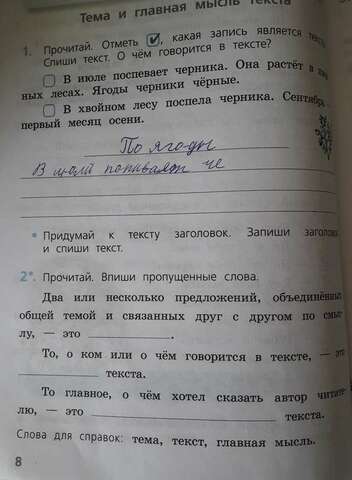 Тема и главная мысль текста
1. Прочитай. Отметь ☑, какая запись является
Спиши текст. О чём говорится в тексте?
В июле поспевает черника. Она растёт в
ных лесах. Ягоды черники чёрные.
В хвойном лесу поспела черника. Сентябрь
первый месяц осени.
По ягоды
В
• Придумай к тексту заголовок. Запиши
и спиши текст.
2*. Прочитай. Впиши пропущенные слова.
Два или несколько предложений, объединённых
общей темой и связанных друг с другом по смыс-
лу, — это
То, о ком или о чём говорится в тексте, — это
текста.
То главное, о чём хотел сказать автор читате-
лю, — это текста.
Слова для справок: тема, текст, главная мысль.
8